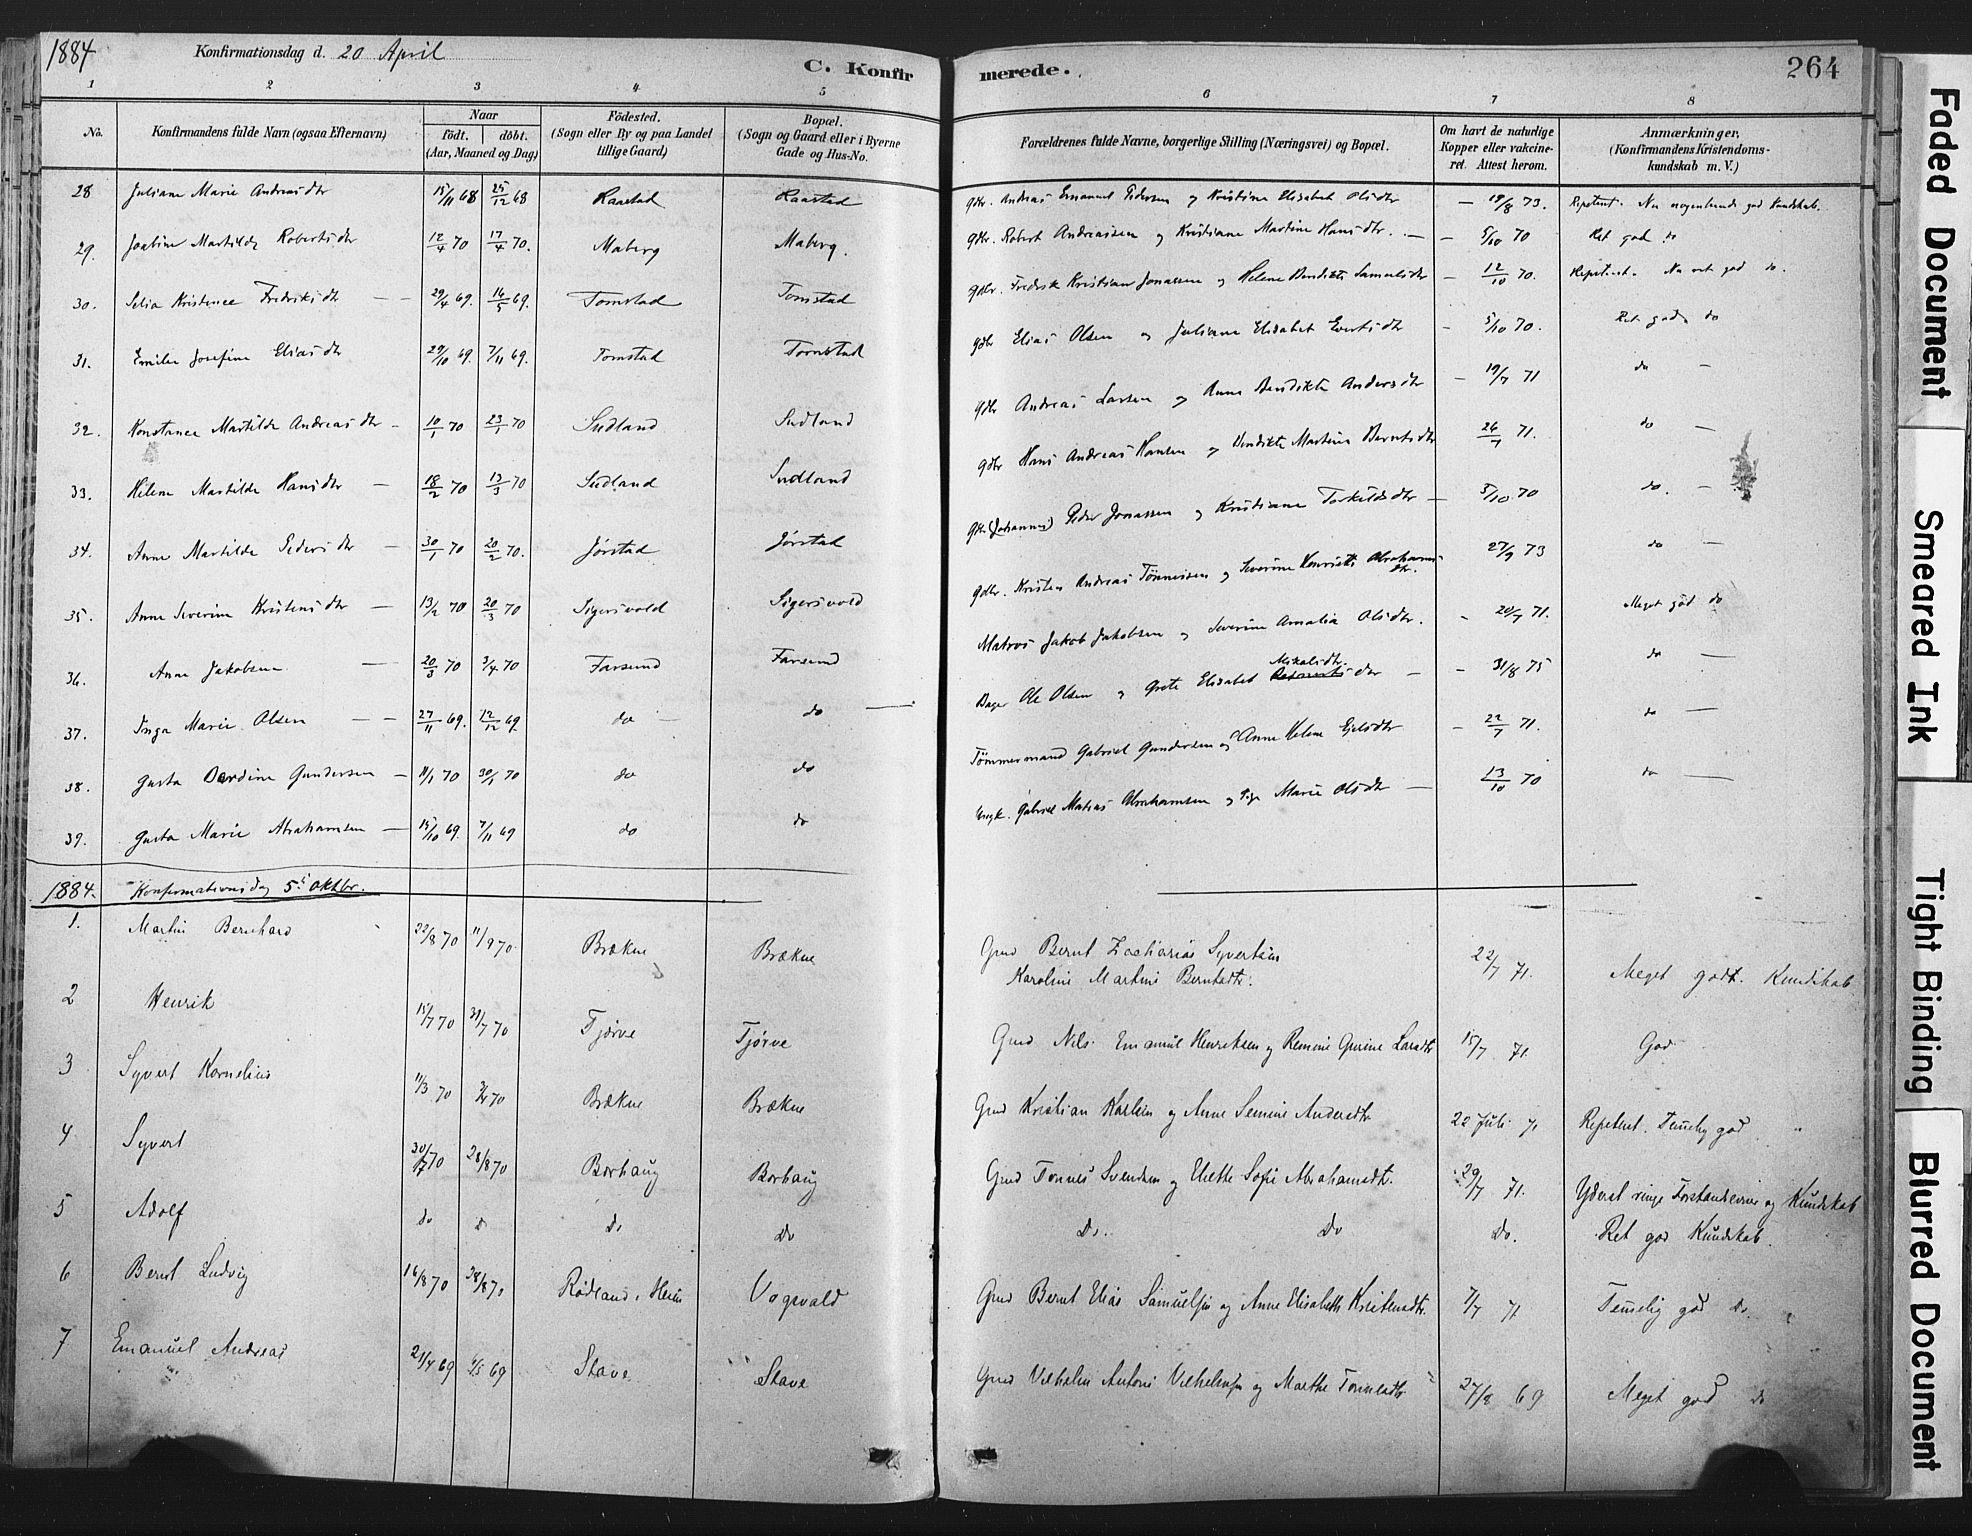 1884 Konfirmationsdag d. 20 April
C. Konfirmerede.
264
1 2 3 4 5 6 7 8
No.
Konfirmandens fulde Navn (ogsaa Efternavn)
Naar
födt. döbt.
(Aar, Maaned og Dag)
Födested.
(Sogn eller By og paa Landet
tillige Gaard)
Bopæl.
(Sogn og Gaard eller i Byerne
Gade og Hus-No.
Forældrenes fulde Navne, borgerlige Stilling (Næringsvei) og Bopæl.
Om havt de naturlige
Kopper eller vakcine-
ret. Attest herom.
Anmærkninger,
(Konfirmandens Kristendoms-
kundskab m. V.)
28 Juliane Marie Andreasdtr 15/11 68 25/12 68 Raastad Raastad Gdbr. Andreas Emanuel Pedersen og Kristine Elisabet Olsdtr — 19/8 73. Repetent. Nu nogenlunde god Kundskab.
29. Martilde Robertsdtr 12/4 70 17/4 70. Maberg Maberg. Gdbr. Robert Andreassen og Kristiane Martine Hansdtr. — 5/10 70 Ret god do
30. Kristence Fredriksdtr — 29/4 69. 16/5 69. Tomstad Tomstad Gdbr. Fredrik Kristian Jonassen og Helene Bendikte Samuelsdtr — 12/10 70. Repetent. Nu ret god do.
31. Emilie Josefine Eliasdtr 29/10 69. 7/11 69. Tomstad Tomstad Gdbr Elias Olsen og Juliane Elisabet Evertsdtr — 5/10 70. Ret god do
32. Konstance Martilde Andreasdtr — 10/1 70 23/1 70 Sudland Sudland Gdbr Andreas Larsen og Anne Bendikte Andersdtr — 19/7 71 do —
33. Helene Martilde Hansdtr — 18/2 70 13/3 70 Sudland Sudland Gdbr Hans Andreas Hansen og Bendikte Martine Berntsdtr 26/7 71. do —
34. Anne Martilde Pedersdtr — 30/1 70 20/2 70. Jørstad Jørstad Gdbr (Johannes) Peder Jonassen og Kristiane Torkildsdtr — 5/10 70 do. —
35. Anne Severine Kristensdtr — 13/2 70 20/3 70 Sigersvold Sigersvold Gdbr. Kristen Andreas Tønnessen og Severine Henriette Abrahams dtr. 27/9 73 do —
36. Anne Jakobsen — 20/3 70 3/4 70 Farsund Farsund Matros Jakob Jakobsen og Severine Amalia Olsdtr. - 20/7 71. Meget god do
37. Inga Marie Olsen — 27/11 69. 12/12 69. do — do — Bager Ole Olsen og Grete Elisabet Nikolsdtr. — 31/8 75 do —
38. Gusta Gundersen — 11/1 70 30/1 70 do do Tømmermand Gabriel Gundersen og Anne Helene Ejelsdtr — 22/7 71. do —
39. Gusta Marie Abrahamsen — 15/10 69. 7/11 69 do do Gabriel Matias Abrahamsen og Pige Marie Olsdtr — 13/10 70 do —
1884. Konfirmationsdag 5t Oktbr.
1. Martin Bernhard 22/8 70 11/9 70. Brækne Brækne Gmd Bernt Zacharias Syvertsen
Karoline Martine Berntsdtr. 22/7 71. Meget godt. Kundskab
2 Henrik 15/7 70 31/7 70 Tjørve Tjørve Gmd Nils Emanuel Henriksen og Gurine Larsdtr 15/7 71. God
3 Syvert Kornelius 11/3 70 Brækne Brækne Gmd Kristian Karlsen og Anne Semine Andersdtr 22 Juli 71 Repetent. Temelig god "
4 Syvert 30/7 70 28/8 70 Borhaug Borhaug Gmd Tønnes Svendsen og Elrette Sofie Abrahamsdtr. 29/7 71. Yderst ringe Forstandsevne og Kundskab
5 Adolf do do do Do Do. Do Do. Ret god Kundskab.
6 Bernt Ludvig 16/8 70 28/8 70 Rødland, Herred Vogsvold Gmd Bernt Elias Samuelsen og Anne Elisabeth Kristensdtr. 7/7 71 Temelig god Do
7 Emanuel Andreas 21/4 69 4/5 69 Stave Stave Gmd Vilhelm Antoni Vilhelmsen og Marthe Tønnesdtr 27/8 69 Meget god do
Faded Document
Smeared Ink
Tight Binding
Blurred Document